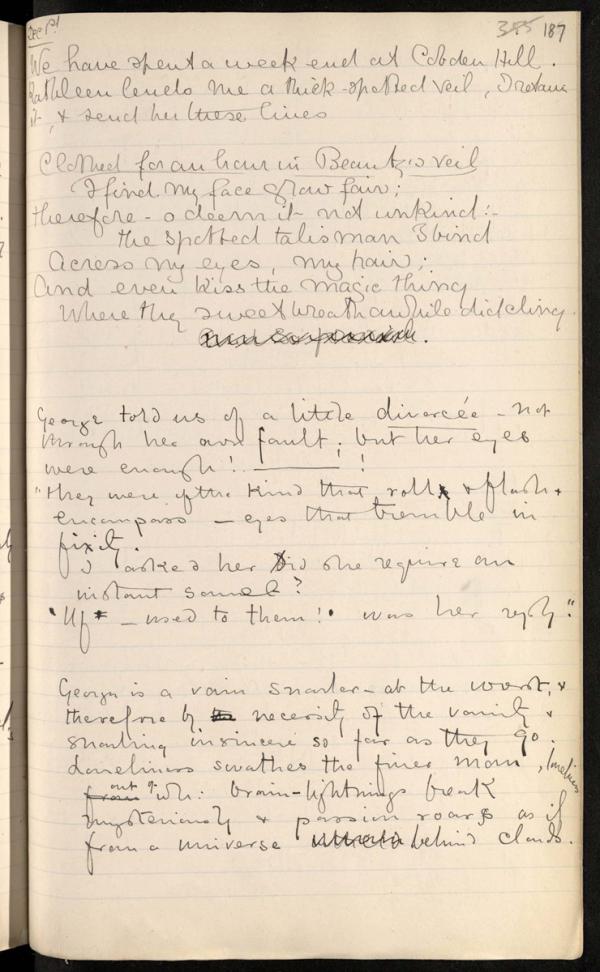 Dec 1st
385 187
We have spent a week end at Cobden Hill.
Kathleen lends me a thick-spotted veil, I retain
it, & send her these lines
Clothed for an hour in Beauty's veil
I find my face grow fair;
therefore - o deem it not unkind:-
the spotted talisman I bind
Across my eyes, my hair;
And even kiss the magic thing
Where thy sweet breath awhile did cling.
George told us of a little divorcée - not
through her own fault; but her eyes
were enough! !
"they were of the kind that roll & flash &
encompass - eyes that tremble in
fixity.
I asked her Did she require an
instant
- used to them!" was her reply."
George is a vain snarler - at the worst, &
therefore by the necessity of the vanity &
snarling insincere so far as they go.
Loneliness swathes the finer man, loneliness
from out of wh: brain-lightnings break
mysteriously & passion roars as if
from a universe behind clouds.